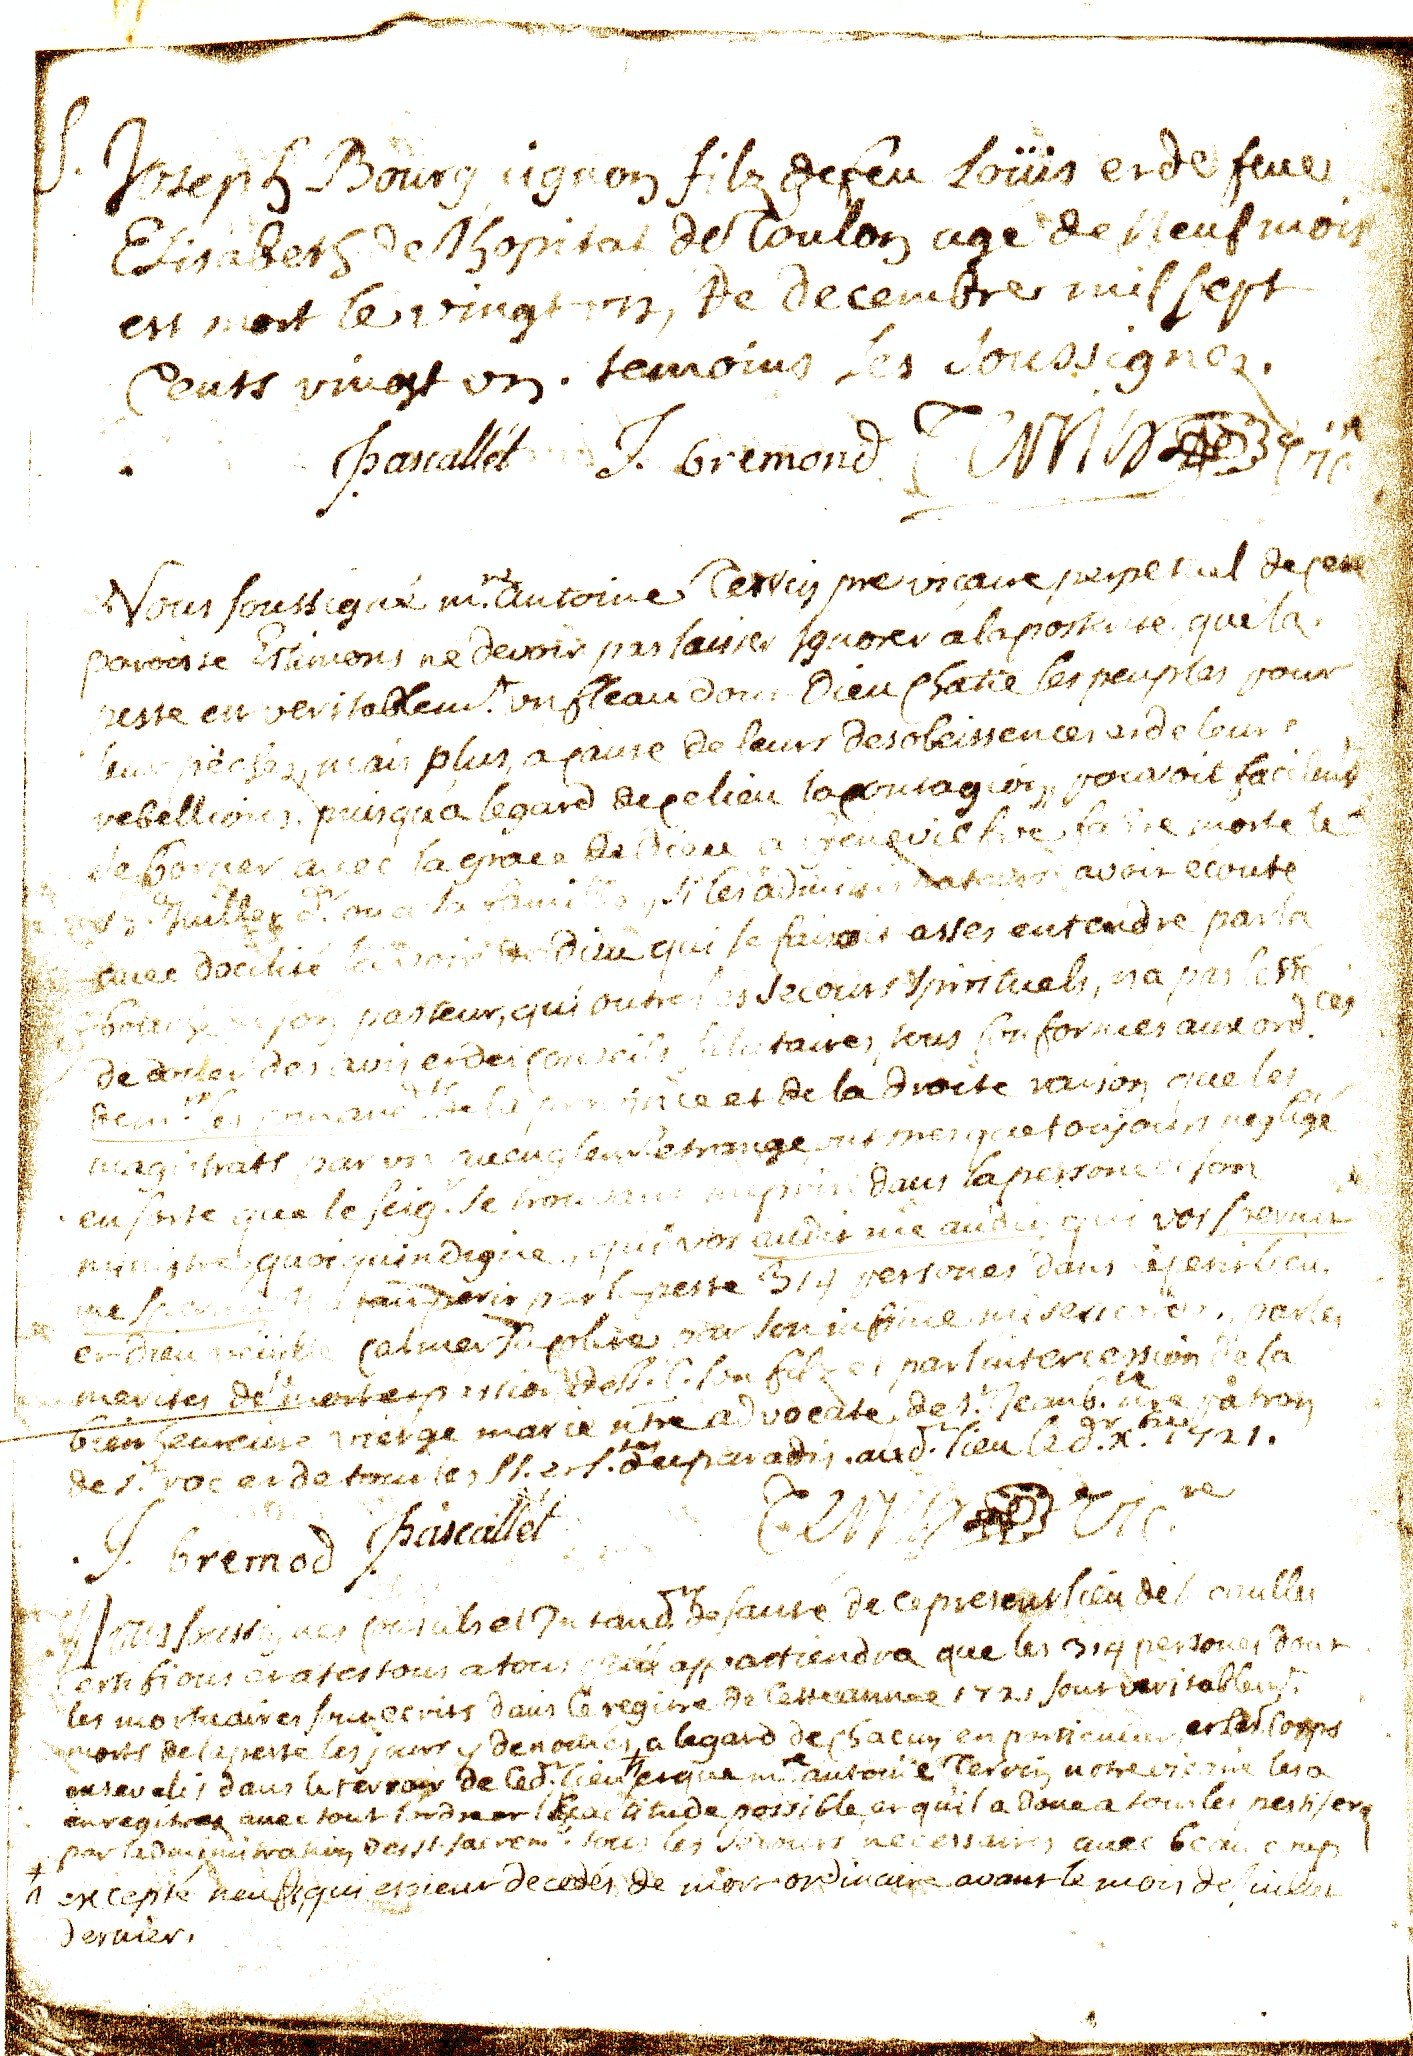 S. Joseph Bourguignon filz de feu Loüis et de feue
Elisabeth de l'hopital de Toulon agé de neuf mois
est mort le vingt un, de decembre mil sept
Cents vingt un. temoins les soussignez.
Pascallét J. bremond Tervin vic.re
Nous soussigné m.re Antoine Tervin pre vicaire perpetuel de cette
paroisse Estimons ne devoir pas laisser Ignorer a la posterité, que la
peste est veritablem.t un fleau dont Dieu chatie les peuples pour
leurs péchez, mais plus, a cause de leurs desobeissences et de leurs
rebellions, puisqu'a legard de ce lieu la contagion, pouvoit facilem.t
se borner avec la grace de Dieu a
Juillet d.r ou a la famille, si les administrateurs avoint ecouté
avec docilité la voix de Dieu qui se faisoit asses entendre par la
bouche de son pasteur, qui outre les secours spirituels, n'a pas cessé
de doner des avis et des conseils salutaires, tous conformes aux ord.ces
de m.rs les comand.ts de la province et de la droite raison que les
magistrats par un aveuglem.t etrange, ont presque toujours negligé
en sorte que le seig.r se trouvant meprisé dans la persone de son
ministre, quoiqu'indigne, qui vos audit me audit, qui vos spernit
me spernit, a fait perir par la peste 314 persones dans ce petit lieu.
et Dieu veüille calmer sa colere par son infinie misericorde, par les
merites de la mort et passion de J. C. son filz et par l'intercession de la
bienheureuse vierge marie n.tre advocate, de s.t Jean b.te n.re patron
de s.t roc et de tous les SS. et S.tes du paradis. aud.t lieu le d.r x.bre 1721.
J. bremod Pascallét Tervin vic.re
Nous soussignes consuls et Intand.ts de santé de ce present lieu de
Certifions et atestons a tous qu'il appartiendra que les 314 persones dont
les mortuaires sont ecrits dans le regitre de cette année 1721 sont veritablem.t
morts de la peste les jours y denomés, a legard de chacun en particulier, et les corps
ensevelis dans le terroir de ced.t lieu, et que m.re antoine Tervin notre vicaire les a
enregitrez avec tout l'ordre et l'Exactitude possible, et qu'il a doné a tous les pestiferez
par l'administration des st. sacrem.ts tous les secours necessaires avec beaucoup
excepté neuf, qui etoient decedés de mort ordinaire avant le mois de juillet
dernier.